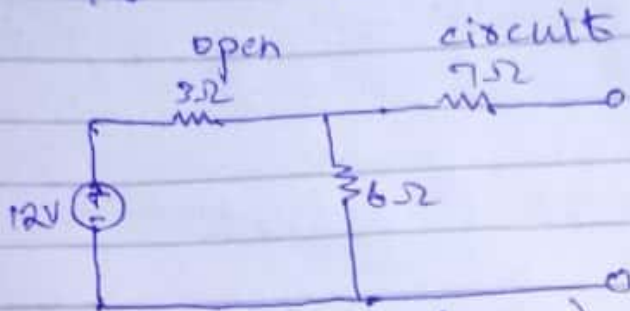 open circuit
3Ω 7Ω
12V + - 6Ω